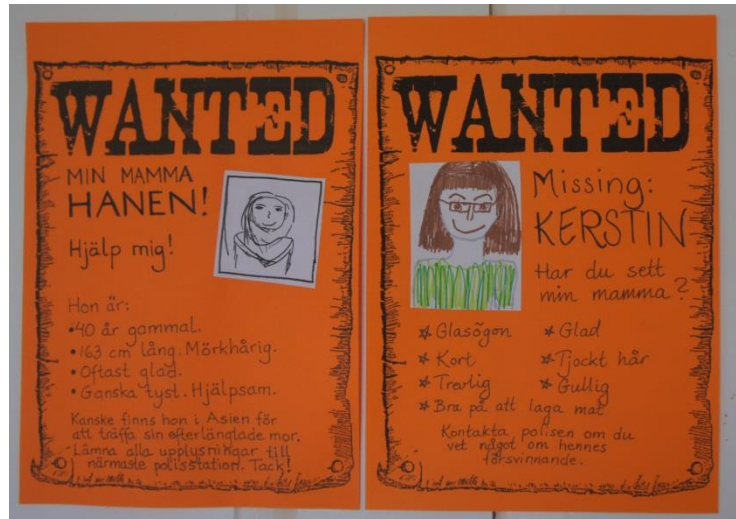 WANTED
MIN MAMMA
HANEN!
Hjälp mig!
Hon är:
• 40 år gammal.
• 163 cm lång. Mörkhårig.
• Oftast glad.
• Ganska tyst. Hjälpsam.
Kanske finns hon i Asien för
att träffa sin efterlänglade mor.
Lämna alla upplysningar till
närmaste polisstation. Tack!
WANTED
Missing:
KERSTIN
Har du sett
min mamma?
☆ Glasögon ☆ Glad
☆ Kort ☆ Tjockt hår
☆ Trevlig ☆ Gullig
☆ Bra på att laga mat
Kontakta polisen om du
vet något om hennes
försvinnande.